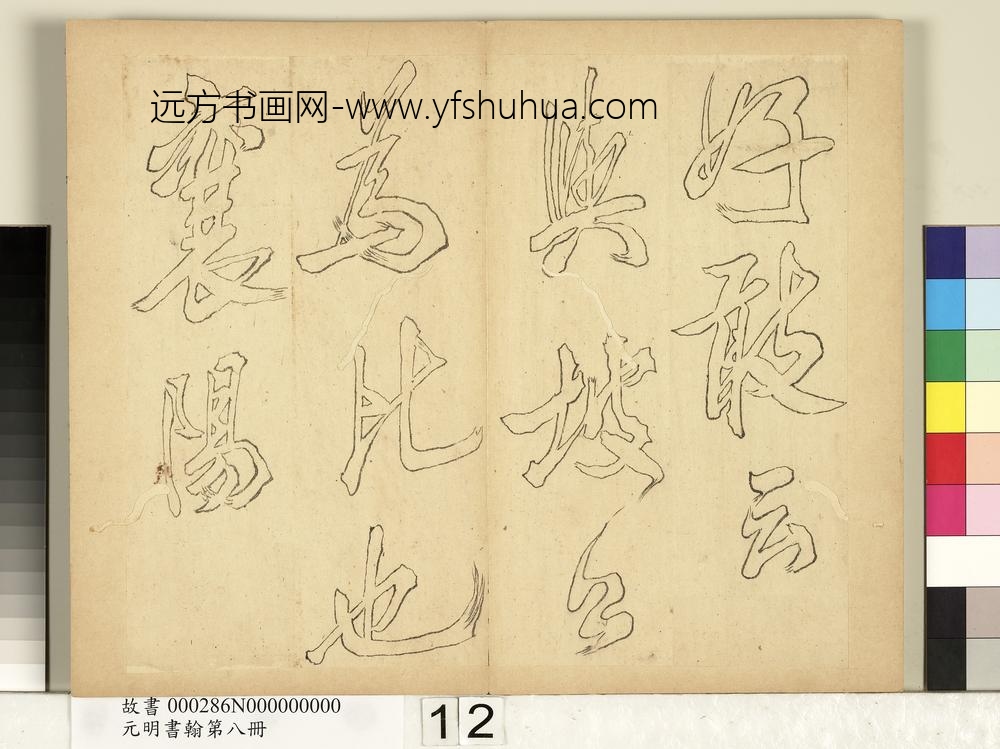 远方书画网-www.yfshuhua.com
好敢云
與坡公
為比也
襄陽
故書 000286N000000000
元明書翰第八冊
12